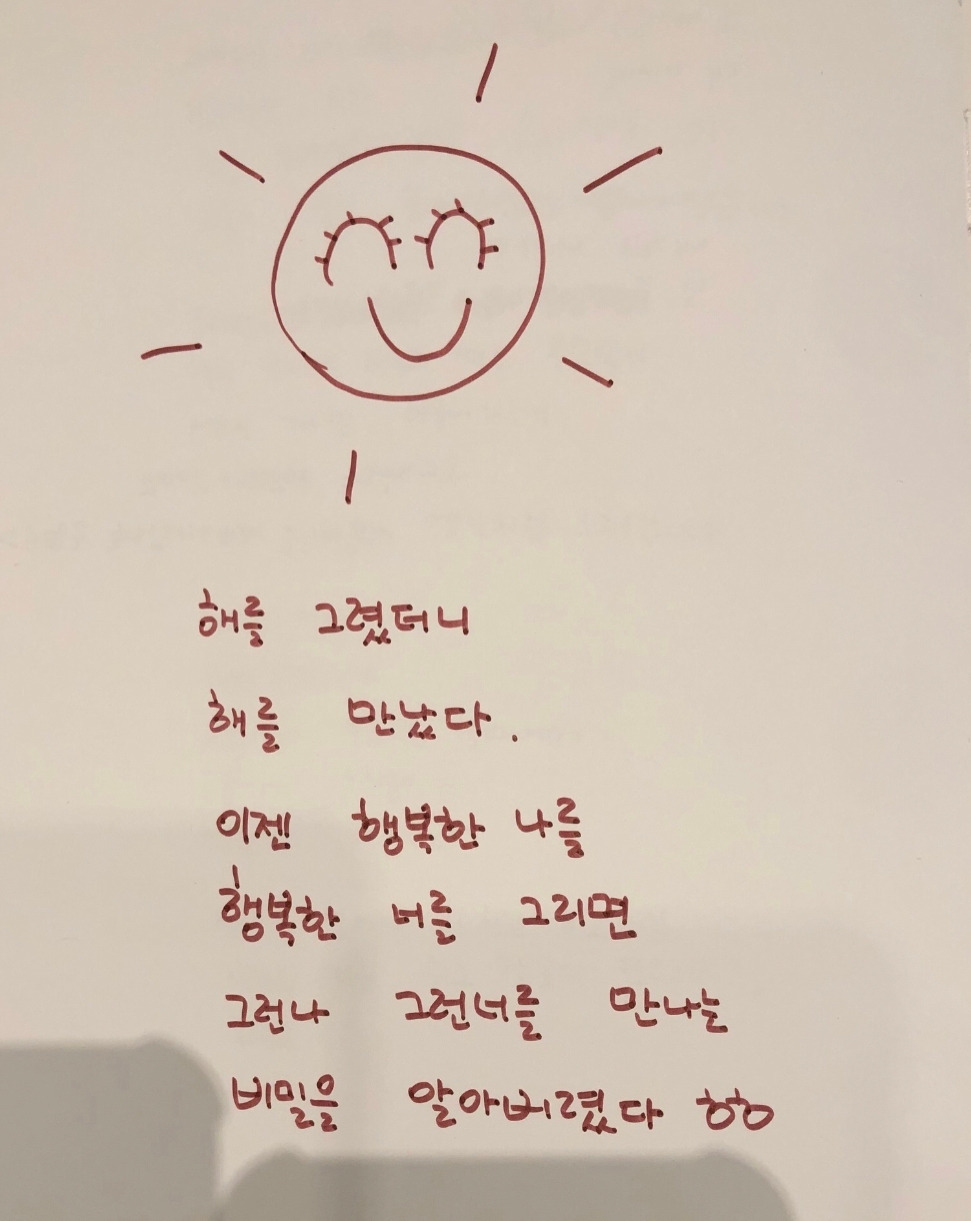 해를 그렸더니
해를 만났다.
이젠 행복한 나를
행복한 너를 그리면
그런나 그런너를 만나는
비밀을 알아버렸다 ㅎㅎ